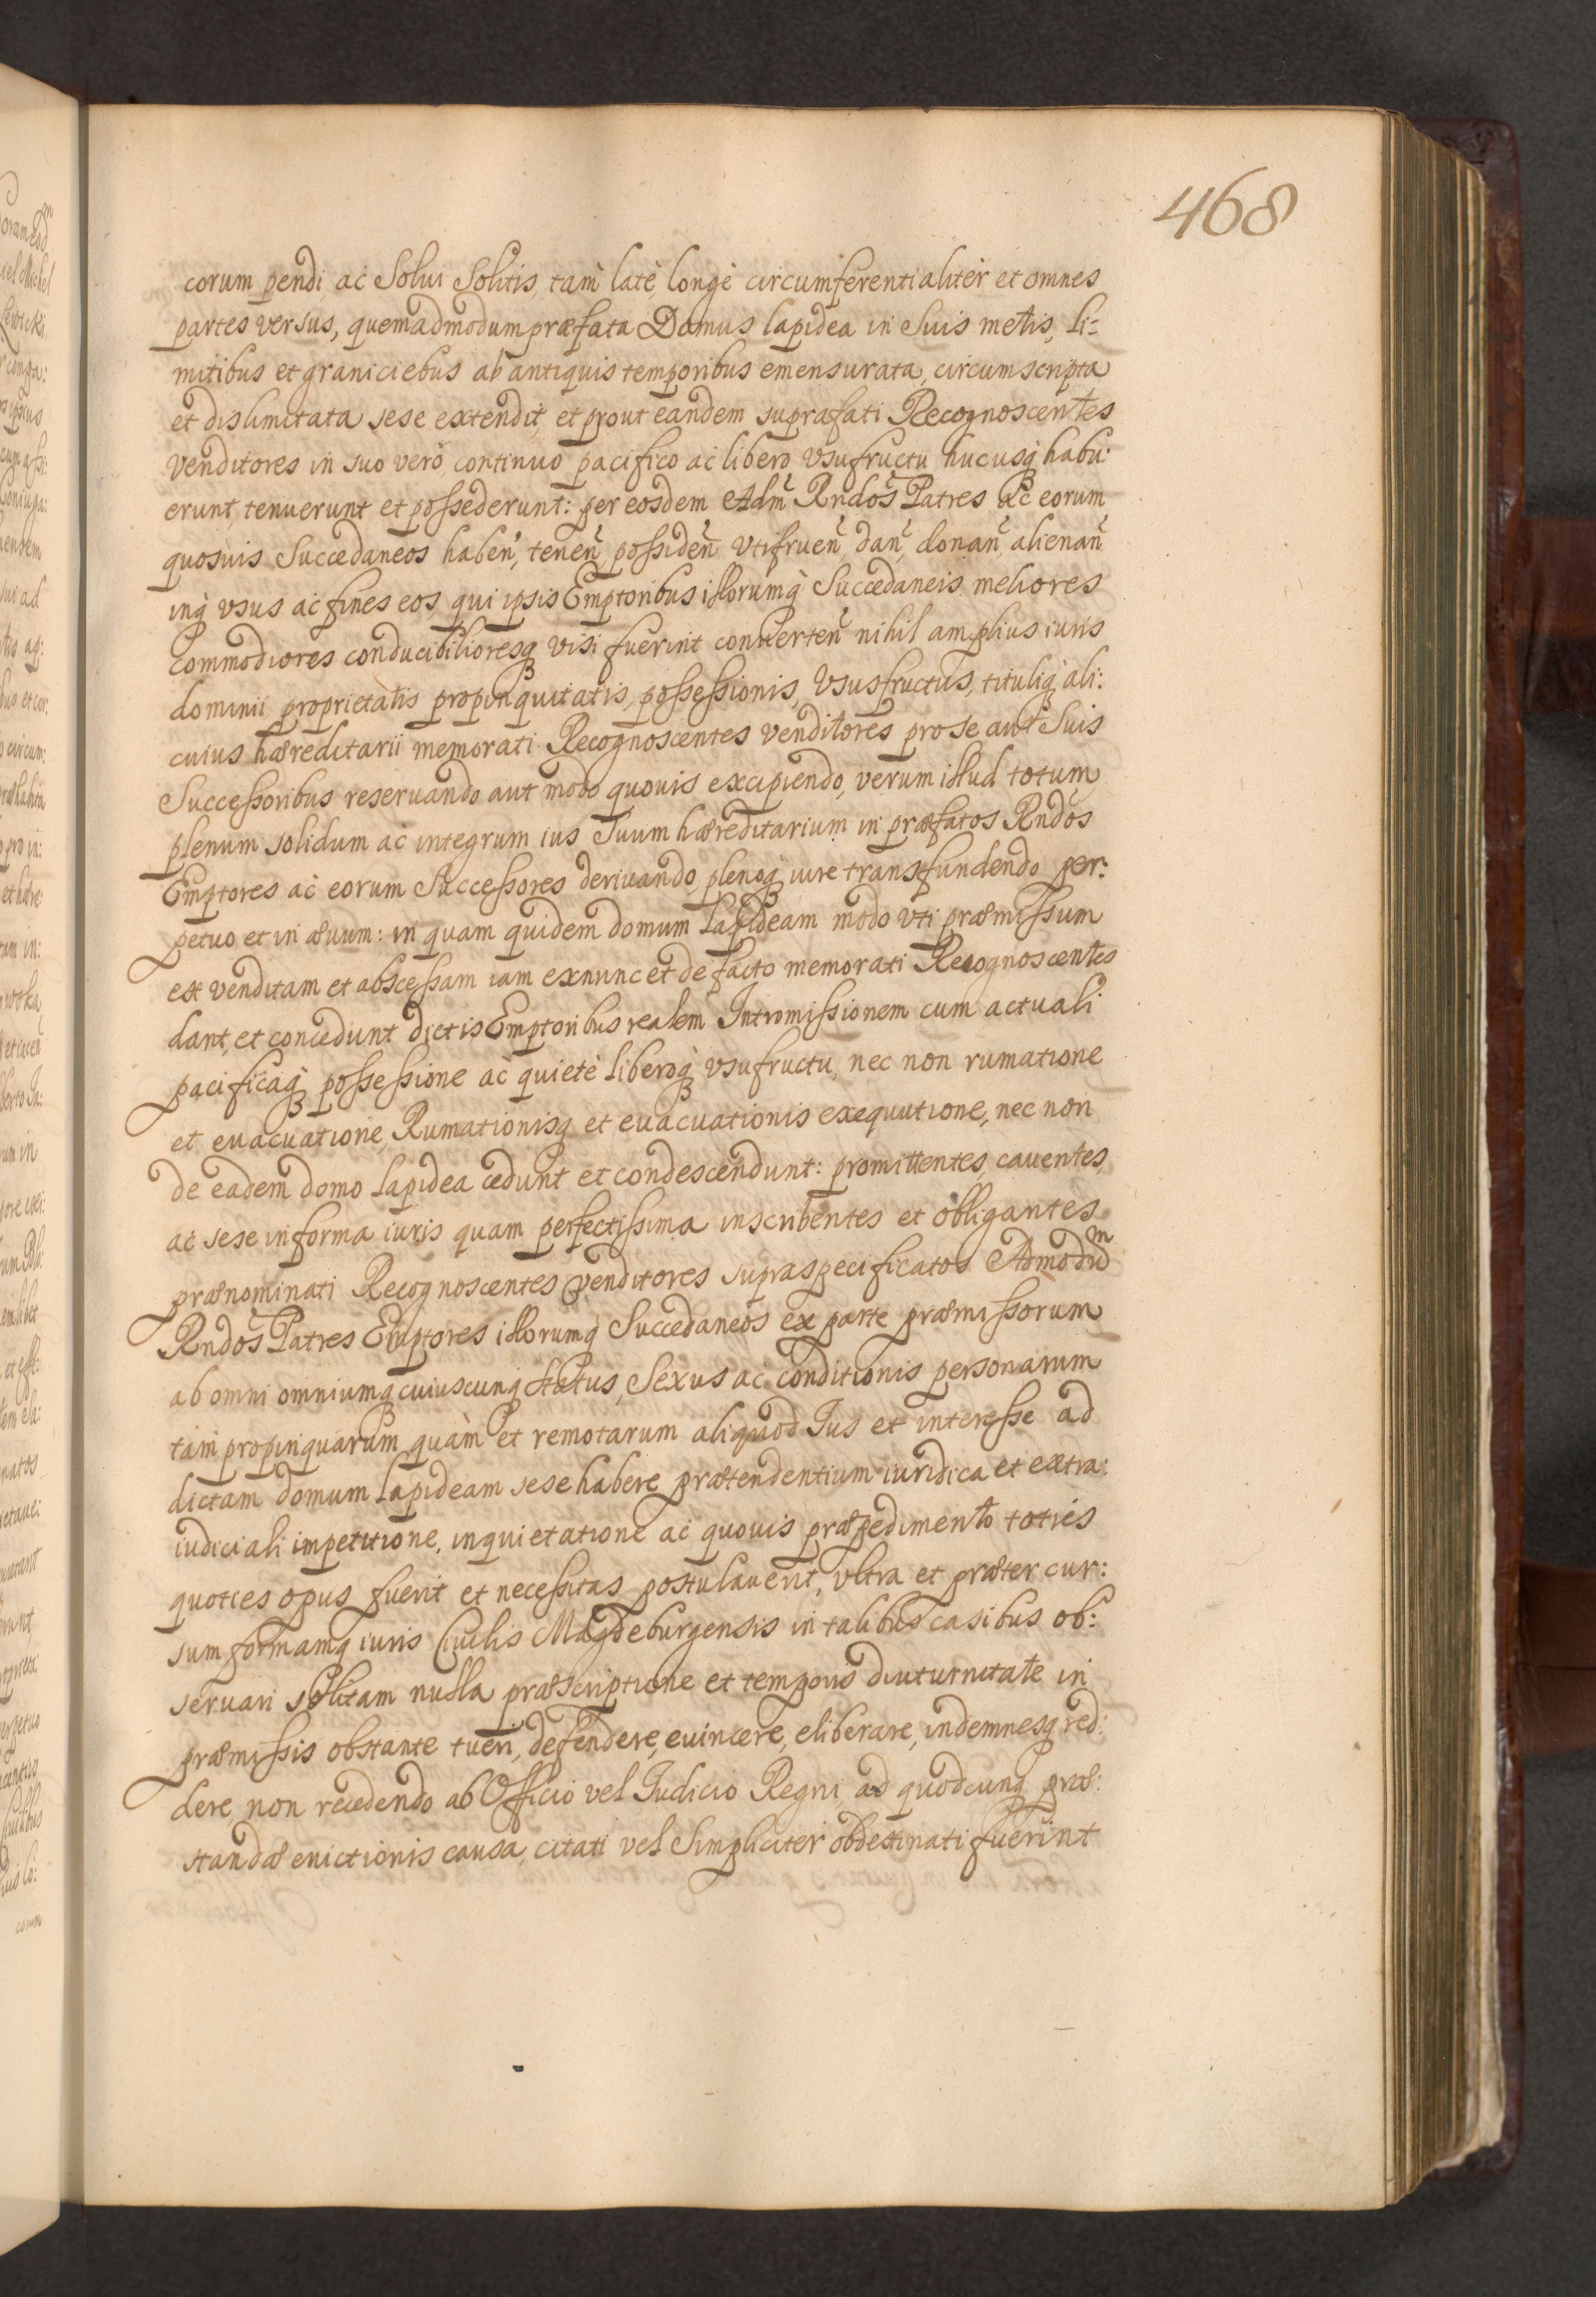 468
corum pendi ac Solui Solitis, tam latè, longè circumferentialiter, et omnes
partes versus, quemadmodum præfata Domus lapidea in Suis metis, li=
mitibus et graniciebus ab antiquis temporibus emensurata, circumscripta
et dislimitata sese extendit, et prout eandem supræfati Recognoscentes
venditores in suo vero, continuo pacifico ac libero vsufructu hucusq habu:
erunt, tenuerunt et possederunt: per eosdem Adm Rndos Patres ac eorum
quosuis Succedaneos haben, tenen, possiden vtifruen, dan, donan, alienan
inq vsus ac fines eos, qui ipsis Emptoribus illorumq Succedaneis meliores
commodiores conducibilioresq visi fuerint conuerten nihil amplius iuris
dominii proprietatis propinquitatis, possessionis, Vsusfructus, tituliq ali:
cuius hæreditarii memorati Recognoscentes venditores pro se aut Suis
Successoribus reseruando aut modo quouis excipiendo, verum illud totum
plenum solidum ac integrum ius Suum hæreditarium in præfatos Rndos
Emptores ac eorum Successores deriuando, plenoq iure transfundendo per:
petuo et in æuum: in quam quidem domum Lapideam modo vti præmissum
est venditam et abscessam iam exnunc et de facto memorati Recognoscentes
dant, et concedunt dictis Emptoribus realem Intromissionem cum actuali
pacificaq possessione ac quietè liberoq vsufructu, nec non rumatione
et euacuatione, Rumationisq et euacuationis exequutione, nec non
de eadem domo Lapidea cedunt et condescendunt: promittentes, cauentes,
ac sese in forma iuris quam perfectissima inscribentes et obligantes
prænominati Recognoscentes venditores supraspecificatos Admodum
Rndos Patres Emptores illorumq Succedaneos ex parte præmissorum
ab omni omniumq cuiuscunq Status, Sexus ac conditionis personarum
tam propinquarum quàm et remotarum aliquod Ius et interesse ad
dictam domum Lapideam sese habere prætendentium iuridica et extra:
iudiciali impetitione, inquietatione ac quouis præpedimento toties
quoties opus fuerit et necessitas postulauerit, vltra et præter cur:
sum formamq iuris Ciuilis Magdeburgensis in talibus casibus ob:
seruari solitam nulla præscriptione et temporis diuturnitate in
præmissis obstante tueri, defendere, euincere, eliberare, indemnesq red:
dere, non recedendo ab Officio vel Iudicio Regni, ad quodcunq præ:
standæ euictionis causa, citati vel Simpliciter obdestinati fuerint